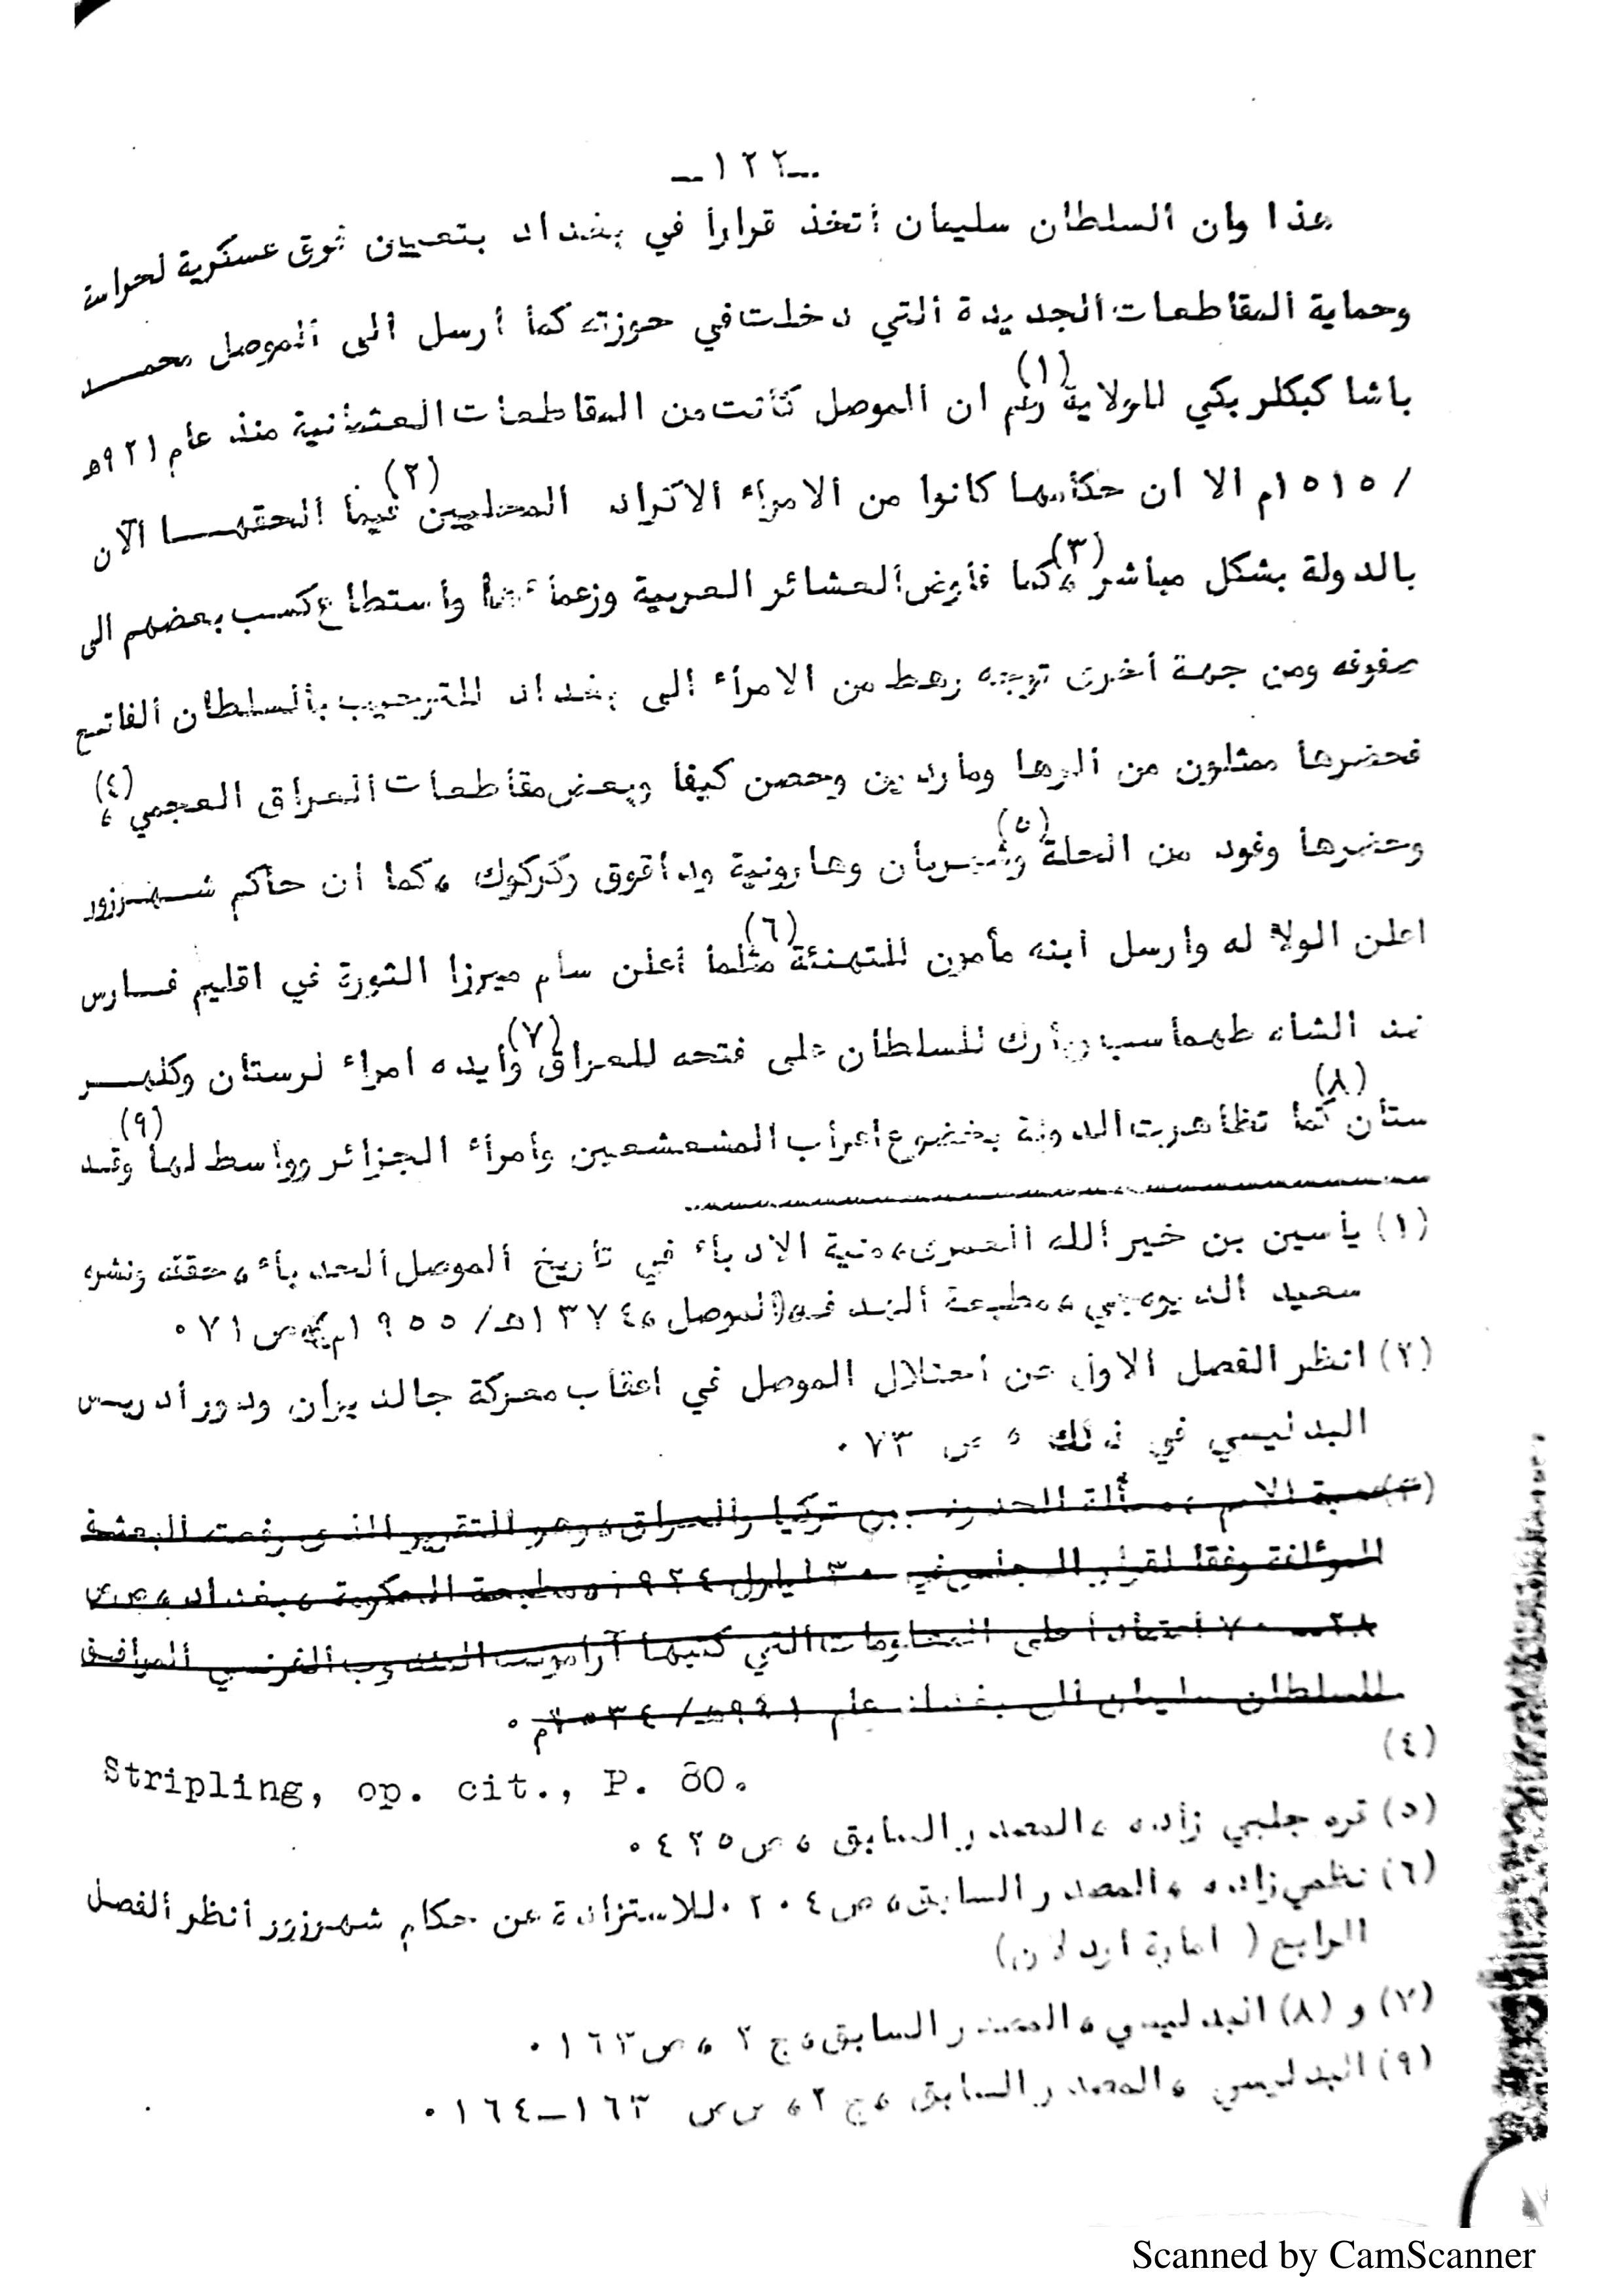 ـ ١٢٢ ـ
هذا وان السلطان سليمان أتخذ قرارا في بغداد بتعيين فوق عسكرية لحراسة
وحماية المقاطعات الجديدة التي دخلت في حوزته كما أرسل الى الموصل محمـــد
باشا كبكلر بكي للولاية (١) رغم ان الموصل كانت من المقاطعات العثمانية منذ عام ٩٢١هـ
/ ١٥١٥م الا ان حكامها كانوا من الامراء الاكراد المحليين (٢) فيما الحقهـــا الآن
بالدولة بشكل مباشر (٣) ، كما فأوض العشائر العربية وزعمائها وأستطاع كسب بعضهم الى
صفوفه ومن جهة أخرى توجه رهط من الامراء الى بغداد للترحيب بالسلطان الفاتح
فحضرها ممثلون من الرها وماردين وحصن كيفا وبعض مقاطعات العراق العجمي (٤) ،
وحضرها وفود من الحلة (٥) وشهربان وهارونية وداقوق وكركوك ، كما ان حاكم شـــهرزور
اعلن الولاء له وأرسل أبنه مأمون للتهنئة (٦) مثلما أعلن سام ميرزا الثورة في اقليم فـــارس
ضد الشاه طهماسب وبارك للسلطان على فتحه للعراق (٧) وأيده امراء لرستان وكلهـــر
ستان (٨) كما تظاهرت الدولة بخضوع اعراب المشعشعين وأمراء الجزائر وواسط لها (٩) وقد
(١) ياسين بن خير الله العمرى ، منية الادباء في تأريخ الموصل الحدباء ، حققه ونشره
سعيد الديوه جي ، مطبعة الهدف (الموصل ، ١٣٧٤هـ/ ١٩٥٥م) ص ٧١ ٠
(٢) انظر الفصل الاول عن أحتلال الموصل في اعقاب معركة جالديران ودور أدريس
البدليسي في ذلك ، ص ٧٣ ٠
(٣) عصبة الامم ، مسألة الحدود بين تركيا والعراق ، وهو التقرير الذى رفعته البعثة
المؤلفة وفقا لقرار المجلس في ٣٠ ايلول ١٩٢٤ ، مطبعة الحكومة ، بغداد ، ص ص
أعتمادا على المعلومات التي كتبها آرامون المندوب الفرنسي المرافق
للسلطان سليمان الى بغداد عام ٩٤١هـ/ ١٥٣٤م ٠
(٤)
Stripling, op. cit., P. 80.
(٥) قره جلبي زاده ، المصدر السابق ، ص ٤٢٥ ٠
(٦) نظمي زاده ، المصدر السابق ، ص ٢٠٤ ٠ للاستزادة عن حكام شهرزور أنظر الفصل
الرابع ( امارة اردلان)
(٧) و (٨) البدليسي ، المصدر السابق ، ج ٢ ، ص ١٦٣ ٠
(٩) البدليسي ، المصدر السابق ، ج ٢ ، ص ص ١٦٣ـ١٦٤ ٠
Scanned by CamScanner